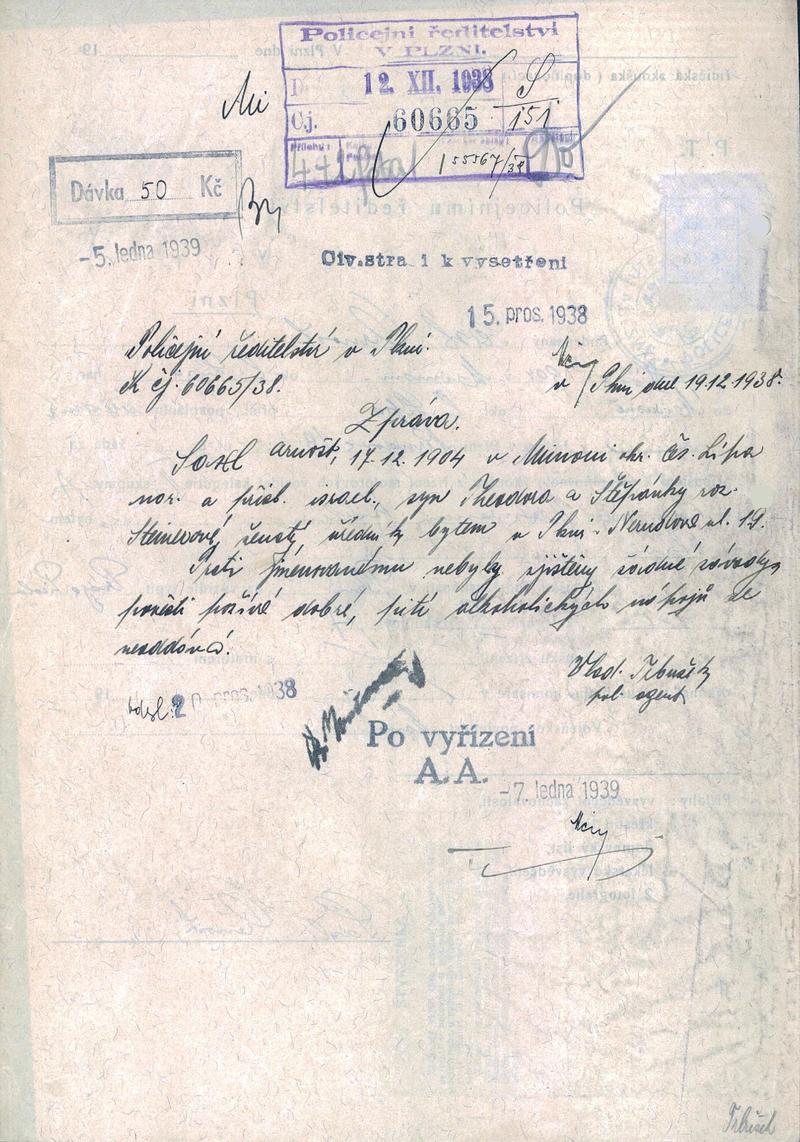 Policejní ředitelství
V PLZNI.
D 12. XII. 1938 S
Čj. 60665 151
Přílohy:
155567/38
Dávka 50 Kč
-5. ledna 1939
Civ.stra i k vyšetření
15. pros. 1938
Policejní ředitelství v Plzni.
K čj. 60665/38.
v Plzni dne 19.12.1938.
Zpráva.
Arnošt, 17.12.1904 v Mimoni okr. Čs. Lípa
nár. a přísl. israel., syn Theodora a Štěpánky roz.
Steinerové, ženatý úředník bytem v Plzni - Nerudova ul. 19.
Proti jmenovanému nebyly zjištěny žádné závady,
pověsti požívá dobré, pití alkoholických nápojů se
neoddává.
Vlad.
pol. agent
odesl. 20 pros. 1938
Po vyřízení
A.A.
-7. ledna 1939